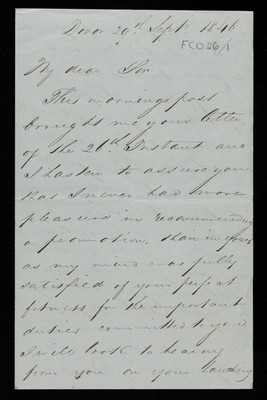 Dover 29th Sept 1846
FCO26/1
My dear Sir
This mornings post
brought me your letter
of the 26th Instant and
I hasten to assure you
that I never had more
pleasure in recommending
a promotion, than in yours
as my mind was fully
satisfied of your perfect
fitness for the important
duties committed to you
I will look to hearing
from you on your landing